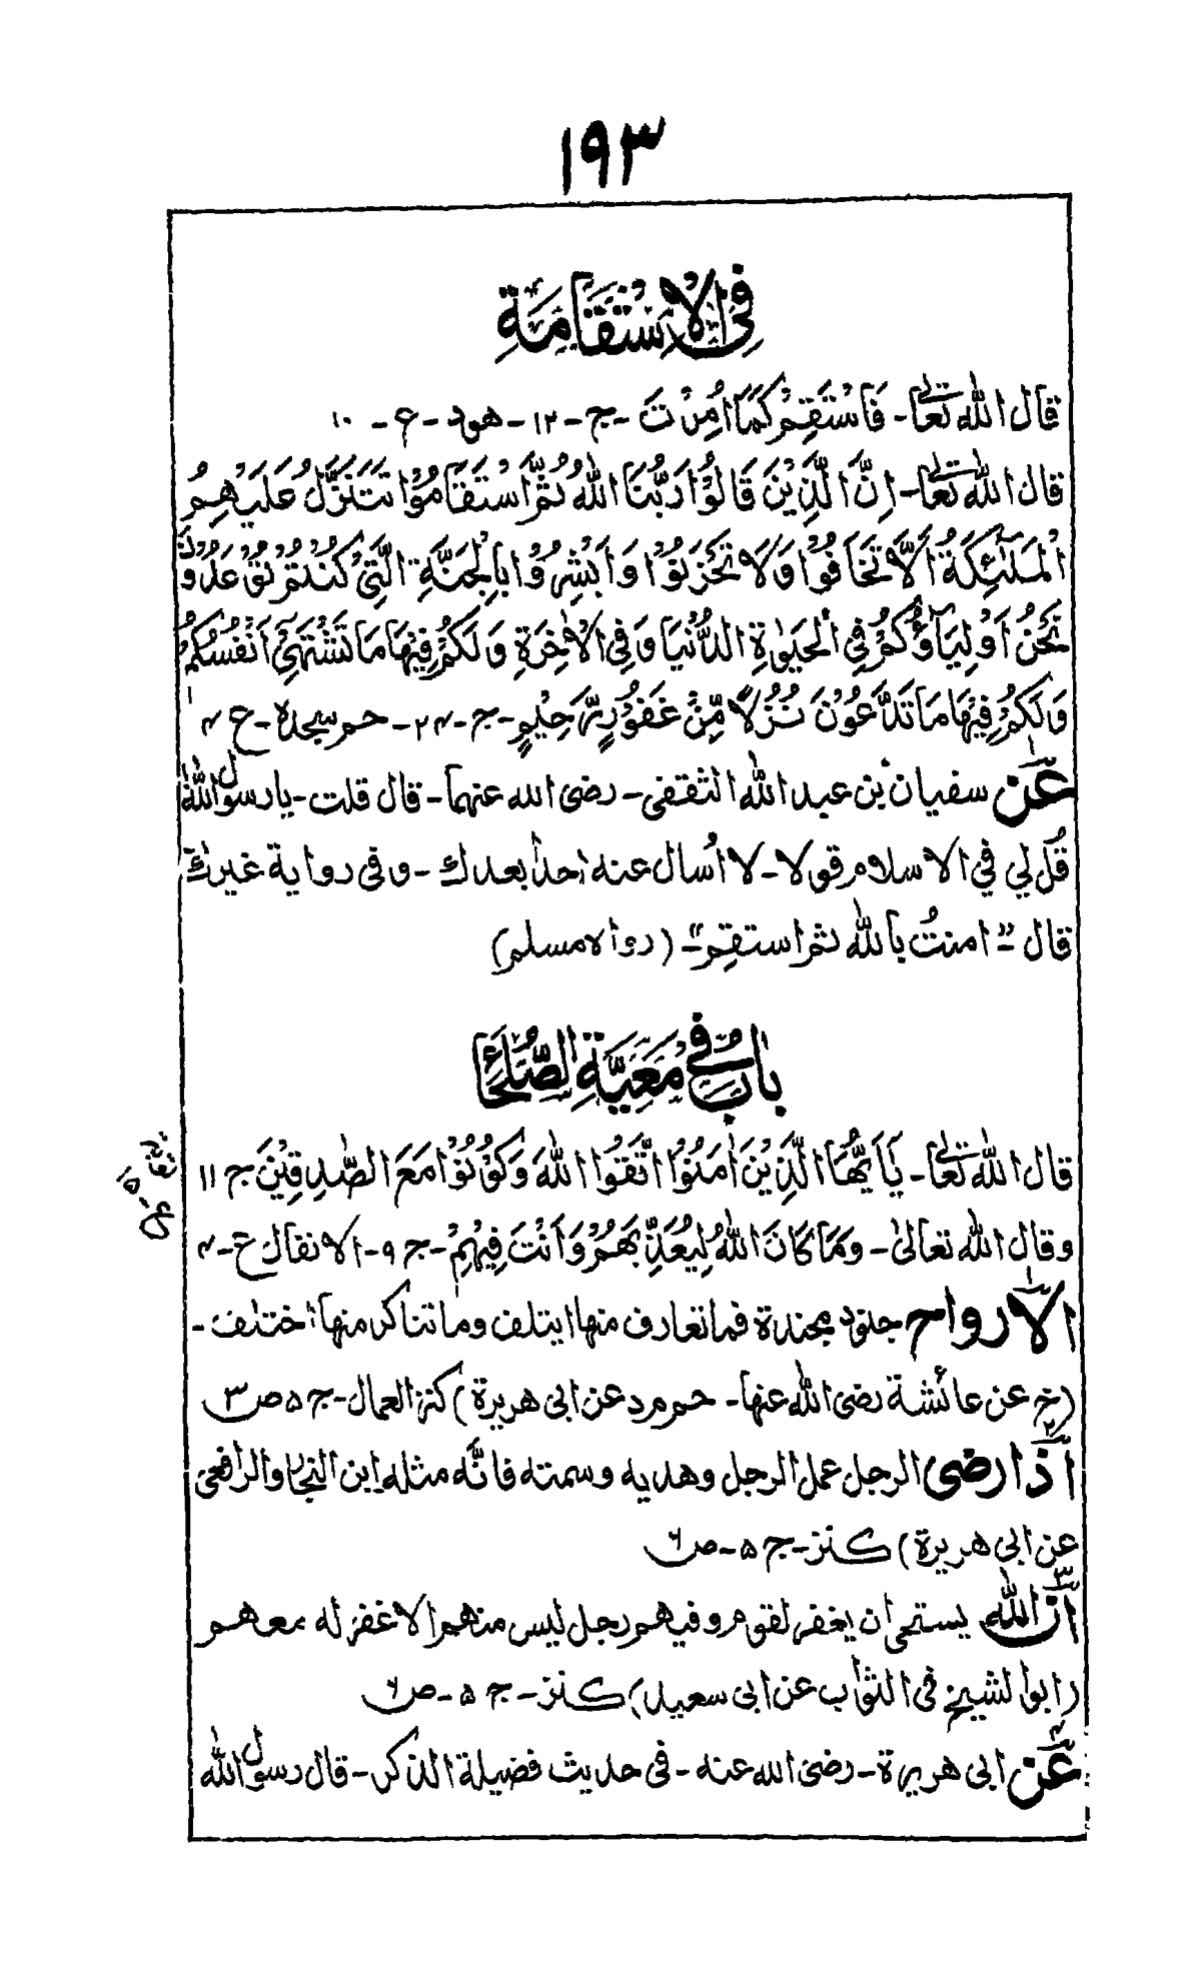 ١٩٣
فِي الْاِسْتَقَامَةِ
قال الله تعالى - فَاسْتَقِمْ كَمَا اُمِرْتَ - ج - ١٢ - هود - ع - ١٠
قال الله تعالى - اِنَّ الَّذِيْنَ قَالُوْا رَبُّنَا اللّٰهُ ثُمَّ اسْتَقَامُوْا تَتَنَزَّلُ عَلَيْهِمُ
الْمَلٰٓئِكَةُ اَلَّا تَخَافُوْا وَلَا تَحْزَنُوْا وَاَبْشِرُوْا بِالْجَنَّةِ الَّتِيْ كُنْتُمْ تُوْعَدُوْنَ
نَحْنُ اَوْلِيَآؤُكُمْ فِي الْحَيٰوةِ الدُّنْيَا وَفِي الْاٰخِرَةِ وَلَكُمْ فِيْهَا مَا تَشْتَهِيْٓ اَنْفُسُكُمْ
وَلَكُمْ فِيْهَا مَا تَدَّعُوْنَ نُزُلًا مِّنْ غَفُوْرٍ رَّحِيْمٍ - ج - ٢٤ - حم سجدة - ع ٤
عَن سفيان بن عبد الله الثقفى - رضى الله عنهما - قال قلت - يا رسول الله
قُل لي في الاسلام قولا - لا اُسال عنه احدا بعدك - وفى رواية غيرك
قال " امنتُ بالله ثم استقِم" - (رواه مسلم)
بابٌ فِيْ مَعِيَّةِ الصُّلَحَاءِ
قال الله تعالى - يٰٓاَيُّهَا الَّذِيْنَ اٰمَنُوا اتَّقُوا اللّٰهَ وَكُوْنُوْا مَعَ الصّٰدِقِيْنَ ج ١١
ع - ١٥
وقال الله تعالىٰ - وَمَا كَانَ اللّٰهُ لِيُعَذِّبَهُمْ وَاَنْتَ فِيْهِمْ - ج ٩ - الانفال ع - ٤
١
الارواح جنود مجندة فما تعارف منها ايتلف وما تناكر منها اختلف -
(خ عن عائشة رضى الله عنها - حم م د عن ابى هريرة) كنز العمال - ج ٥ ص ٣
٢
اذا رضى الرجل عمل الرجل وهديه وسمته فانَّه مثله (ابن النجار والرافعى
عن ابى هريرة) كنز - ج ٥ - ص ٦
٣
انّ الله يستحى ان يغفر لقوم وفيهم رجل ليس منهم الا غفر له معهم
(ابو الشيخ فى الثواب عن ابى سعيد) كنز - ج ٥ - ص ٦
٤
عَن ابى هريرة - رضى الله عنه - فى حديث فضيلة الذكر - قال رسول الله